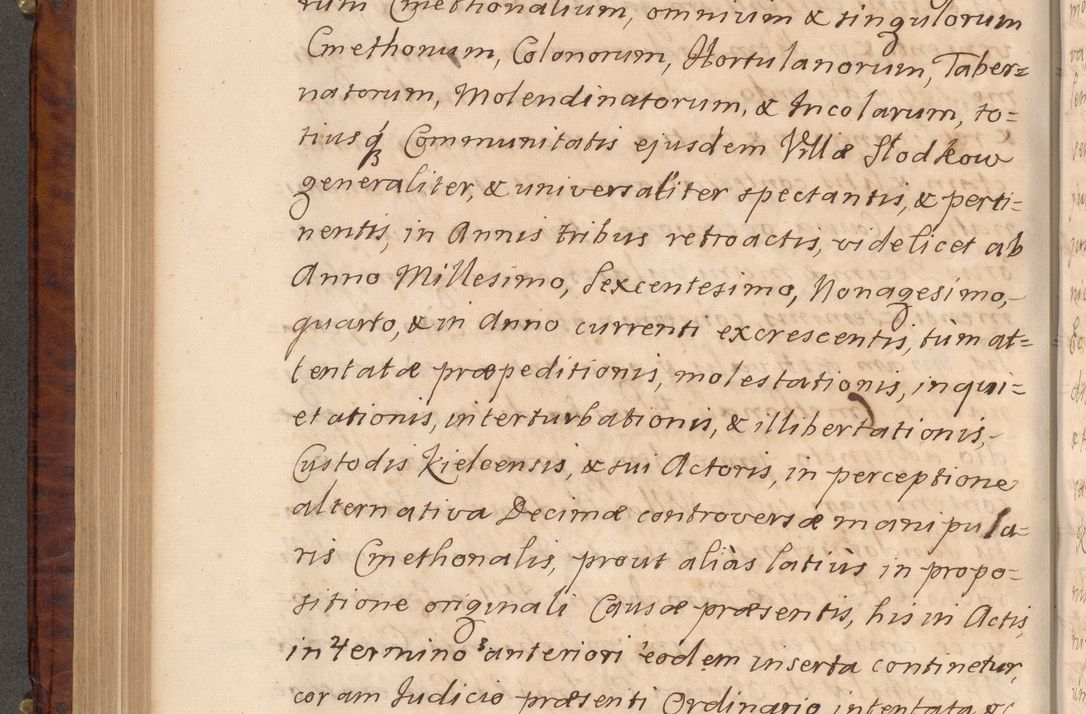 rum Cmethonalium, omnium & singulorum
Cmethonum, Colonorum, Hortulanorum, Taber=
natorum, Molendinatorum, & Incolarum, to=
tiusq́ꝫ Communitatis ejusdem Villæ Stodkow
generaliter, & universaliter spectantis, & perti=
nentis, in Annis tribus retroactis, videlicet ab
Anno Millesimo, Sexcentesimo, Nonagesimo,
quarto, & in Anno currenti excrescentis, tùm at=
tentatæ præpeditionis, molestationis, inqui=
etationis, interturbationis, & illibertationis,
Custodis Kielcensis, & sui Actoris, in perceptione
alternativa Decimæ controversæ manipula=
ris Cmethonalis, prout aliàs latiùs in propo=
sitione originali Causæ præsentis, his in Actis,
in 4 termino 3 anteriori 1 eodem inserta continetur,
coram Judicio præsenti Ordinario intentata &c